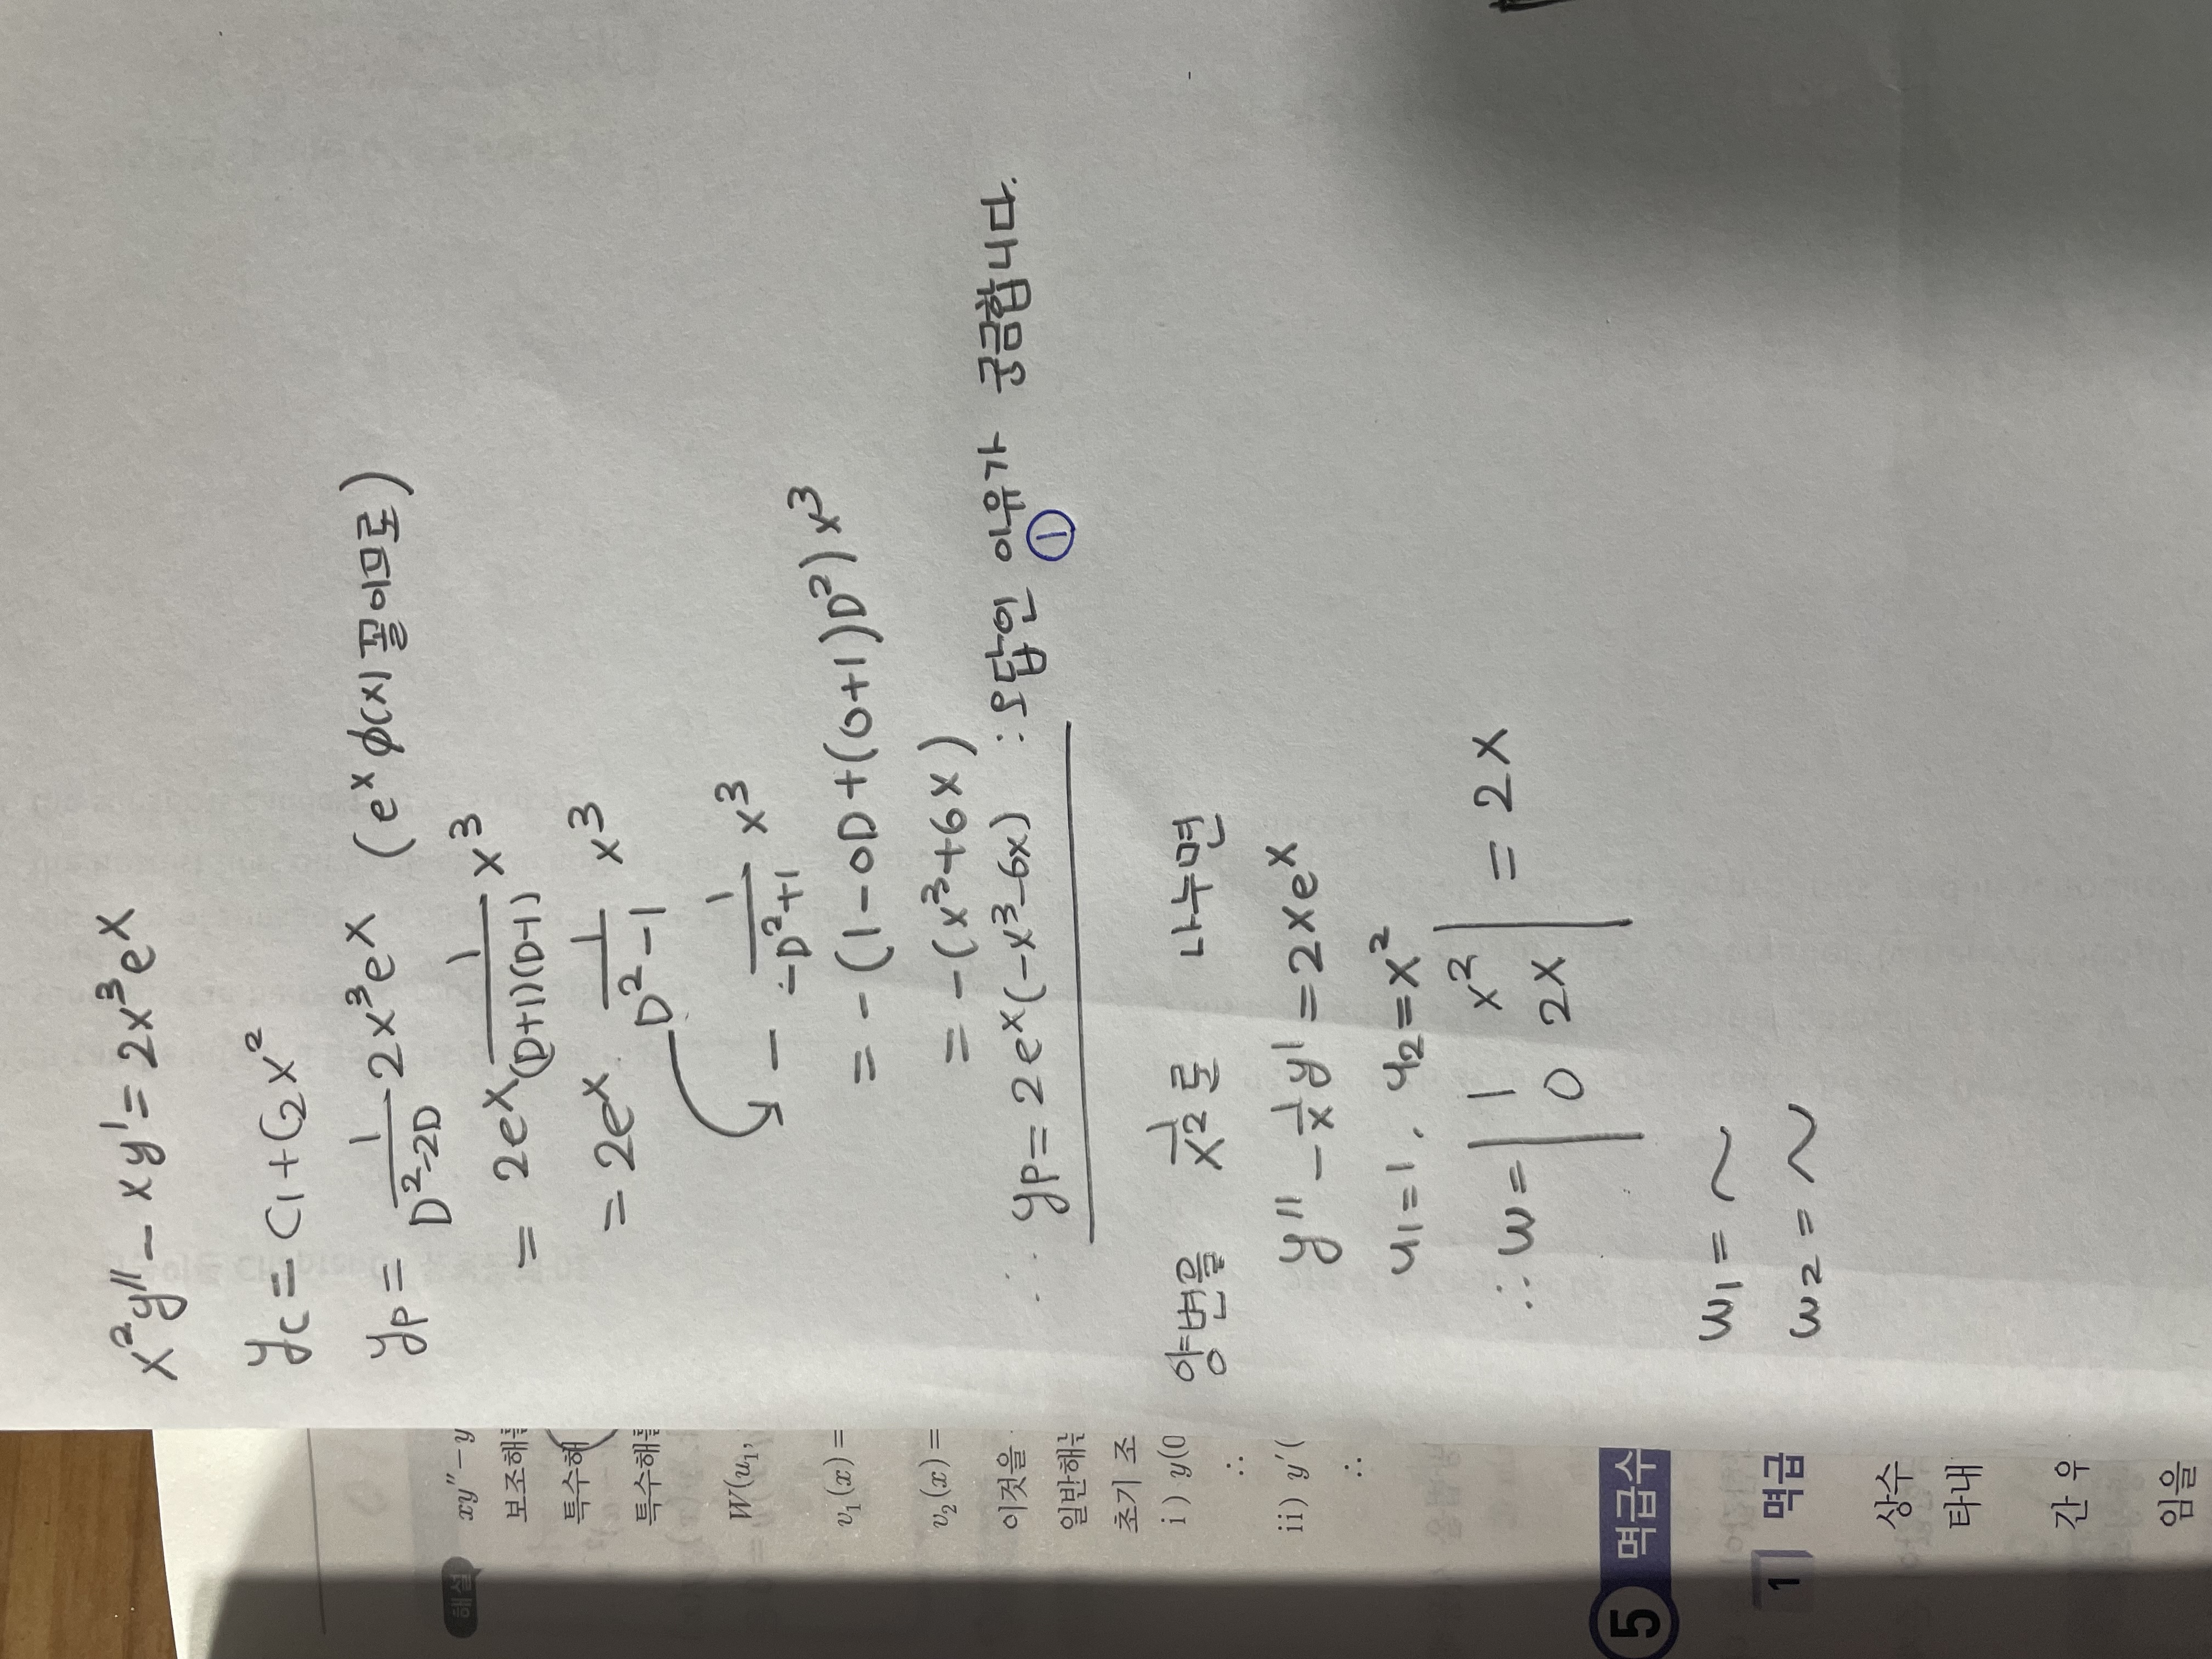 x²y'' - xy' = 2x³eˣ
yc = C₁ + C₂x²
yp = 1/(D²-2D) 2x³eˣ (eˣφ(x) 꼴이므로)
= 2eˣ 1/((D+1)(D-1)) x³
= 2eˣ 1/(D²-1) x³
- 1/(-D²+1) x³
= -(1-0D+(0+1)D²)x³
= -(x³+6x)
∴ yp = 2eˣ(-x³-6x) : 오답인 이유가 궁금합니다.
①
양변을 1/x²로 나누면
y'' - 1/x y' = 2xeˣ
y₁=1, y₂=x²
∴ w = | 1 x² | = 2x
| 0 2x |
w₁ = ~
w₂ = ~
해설
xy''-y
보조해를
특수해
특수해를
W(u₁,
v₁(x) =
v₂(x) =
이것을
일반해는
초기 조
i) y(0
∴
ii) y'(
∴
5 멱급수
1 멱급
상수
타내
간 우
임을